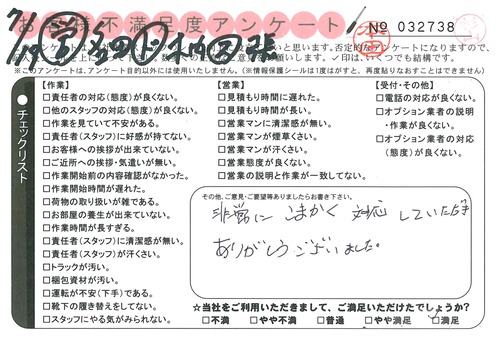 お客様不満足度アンケート
№ 032738
と思います。否定的なアンケートになりますので、
✓印は、いくつでも結構です。
※このアンケートは、アンケート目的以外には使用いたしません。(※情報保護シールは1度はがすと、再度貼りなおすことはできません。)
チェックリスト
【作業】
□責任者の対応(態度)が良くない。
□他のスタッフの対応(態度)が良くない。
□作業を見ていて不安がある。
□責任者(スタッフ)に好感が持てない。
□お客様への挨拶が出来ていない。
□ご近所への挨拶・気遣いが無い。
□作業開始前の内容確認がなかった。
□作業開始時間が遅れた。
□荷物の取り扱いが雑である。
□お部屋の養生が出来ていない。
□作業時間が長すぎる。
□責任者(スタッフ)に清潔感が無い。
□責任者(スタッフ)が汗くさい。
□トラックが汚い。
□梱包資材が汚い。
□運転が不安(下手)である。
□靴下の履き替えをしてない。
□スタッフにやる気がみられない。
【営業】
□見積もり時間に遅れた。
□見積もり時間が長い。
□営業マンに清潔感が無い。
□営業マンが煙草くさい。
□営業マンが汗くさい。
□営業態度が良くない。
□営業の説明と作業が一致してない。
【受付・その他】
□電話の対応が良くない。
□オプション業者の説明
・作業が良くない。
□オプション業者の対応
(態度)が良くない。
その他、ご意見・ご要望等ありましたらお書き下さい。
非常に こまかく 対応 していただき
ありがとうございました。
☆当社をご利用いただきまして、ご満足いただけたでしょうか?
□不満 □やや不満 □普通 □やや満足 □満足